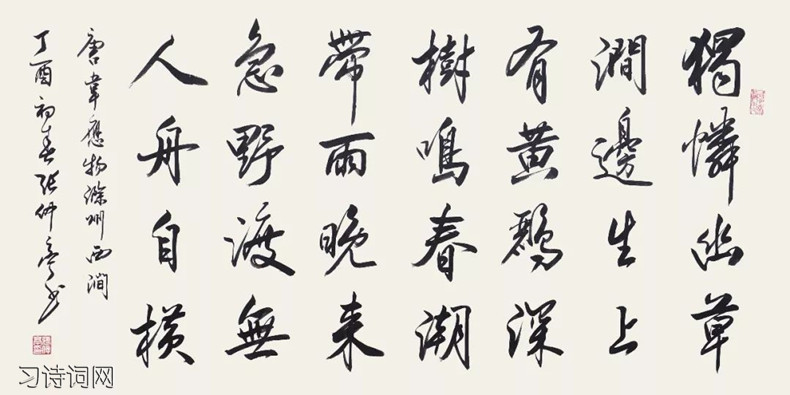 獨憐幽草
澗邊生上
有黄鸝深
樹鳴春潮
帶雨晚来
急野渡無
人舟自横
唐韋應物滁州西澗
丁酉初春张仲亭书
习诗词网